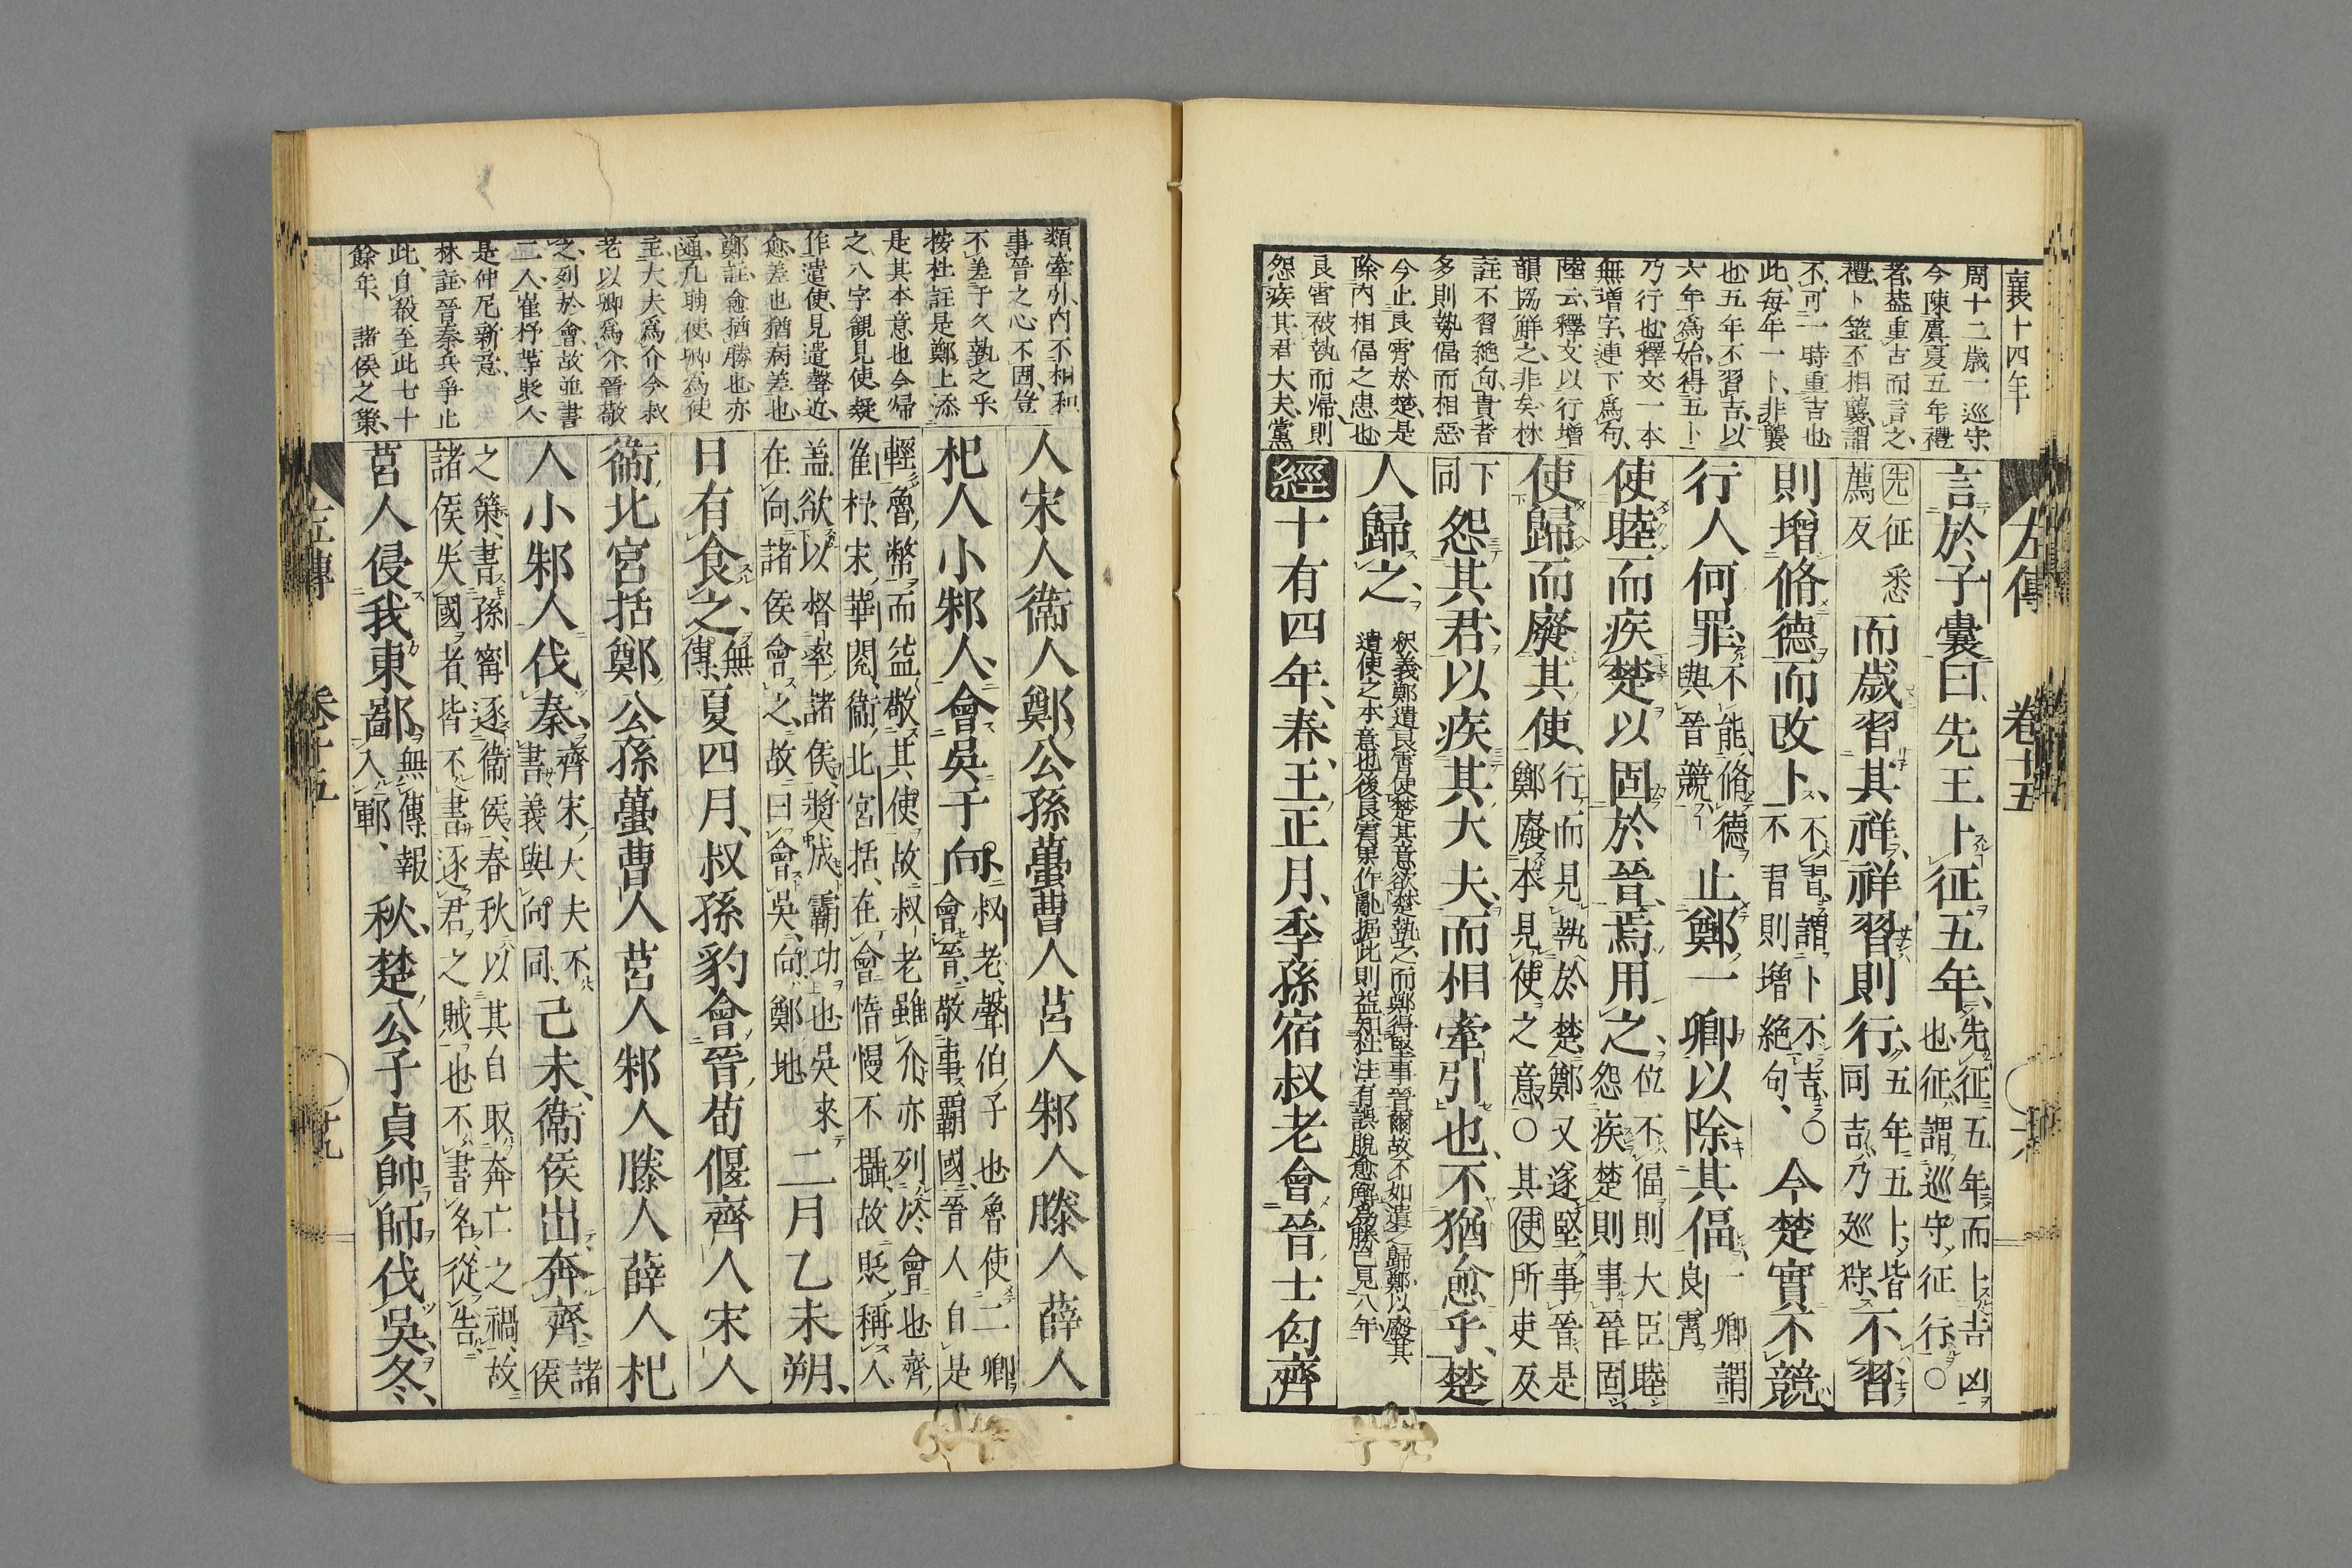 襄十四年
周十二歳一巡守
今陳虞夏五年禮
者蓋重吉而言之
禮卜筮不相襲謂
不可一時重吉也
此毎年一卜非襲
也五年不習吉以
六年爲始得五卜
乃行也釋文一本
無増字連下爲句
陸云釋文以行増
韻協觧之非矣林
註不習絶句貴者
多則勢偪而相惡
今止良霄於楚是
除内相偪之患也
良霄被執而歸則
怨疾其君大夫黨
左傳 卷十五
言於子囊曰先王卜征五年先征五年而卜吉凶
也征謂巡守征行〇
先征悉
薦反
而歳習其祥祥習則行五年五卜皆
同吉乃巡狩
不習
則增脩德而改卜不習謂卜不吉〇
不習則增絶句
今楚實不競
行人何罪不能脩德
與晉競
止鄭一卿以除其偪一卿謂
良霄
使睦而疾楚以固於晉焉用之位不偪則大臣睦
怨疾楚則事晉固
使歸而廢其使行而見執於楚鄭又遂堅事晉是
鄭廢本見使之意〇其使所吏反
下
同
怨其君以疾其大夫而相牽引也不猶愈乎楚
人歸之
釈義鄭遣良霄使楚其意欲楚執之而鄭得堅事晉爾故不如遣之歸鄭以廢其
遣使之本意也後良霄果作亂据此則益知杜注有誤脫愈觧爲勝已見八年
經十有四年春王正月季孫宿叔老會晉士匄齊
類牽引内不相和
事晉之心不固豈
不差于久執之乎
按杜註是鄭上添
是其本意也今歸
之八字觀見使疑
作遣使見遣聲近
愈差也猶病差也
鄭註愈猶勝也亦
通凡聘使卿爲使
主大夫爲介今叔
老以卿爲介晉敬
之列於會故並書
二人崔杼等貶人
是仲尼新意
林註晉秦兵爭止
此自殽至此七十
餘年 諸侯之策
人宋人衞人鄭公孫蠆曹人莒人邾人滕人薛人
杞人小邾人會吳于向叔老聲伯子也魯使二卿
會晉敬事覇國晉人自是
輕魯幣而益敬其使故叔老雖介亦列於會也齊
崔杼宋華閱衞北宮括在會惰慢不攝故貶稱人
蓋欲以督率諸侯奬成霸功也吳來
在向諸侯會之故曰會吳向鄭地
二月乙未朔
日有食之無
傳
夏四月叔孫豹會晉荀偃齊人宋人
衞北宮括鄭公孫蠆曹人莒人邾人滕人薛人杞
人小邾人伐秦齊宋大夫不
書義與向同
己未衞侯出奔齊諸
侯
之策書孫甯逐衞侯春秋以其自取奔亡之禍故
諸侯失國者皆不書逐君之賊也不書名從告
莒人侵我東鄙無傳報
入鄆
秋楚公子貞帥師伐吳冬
左傳 卷十五